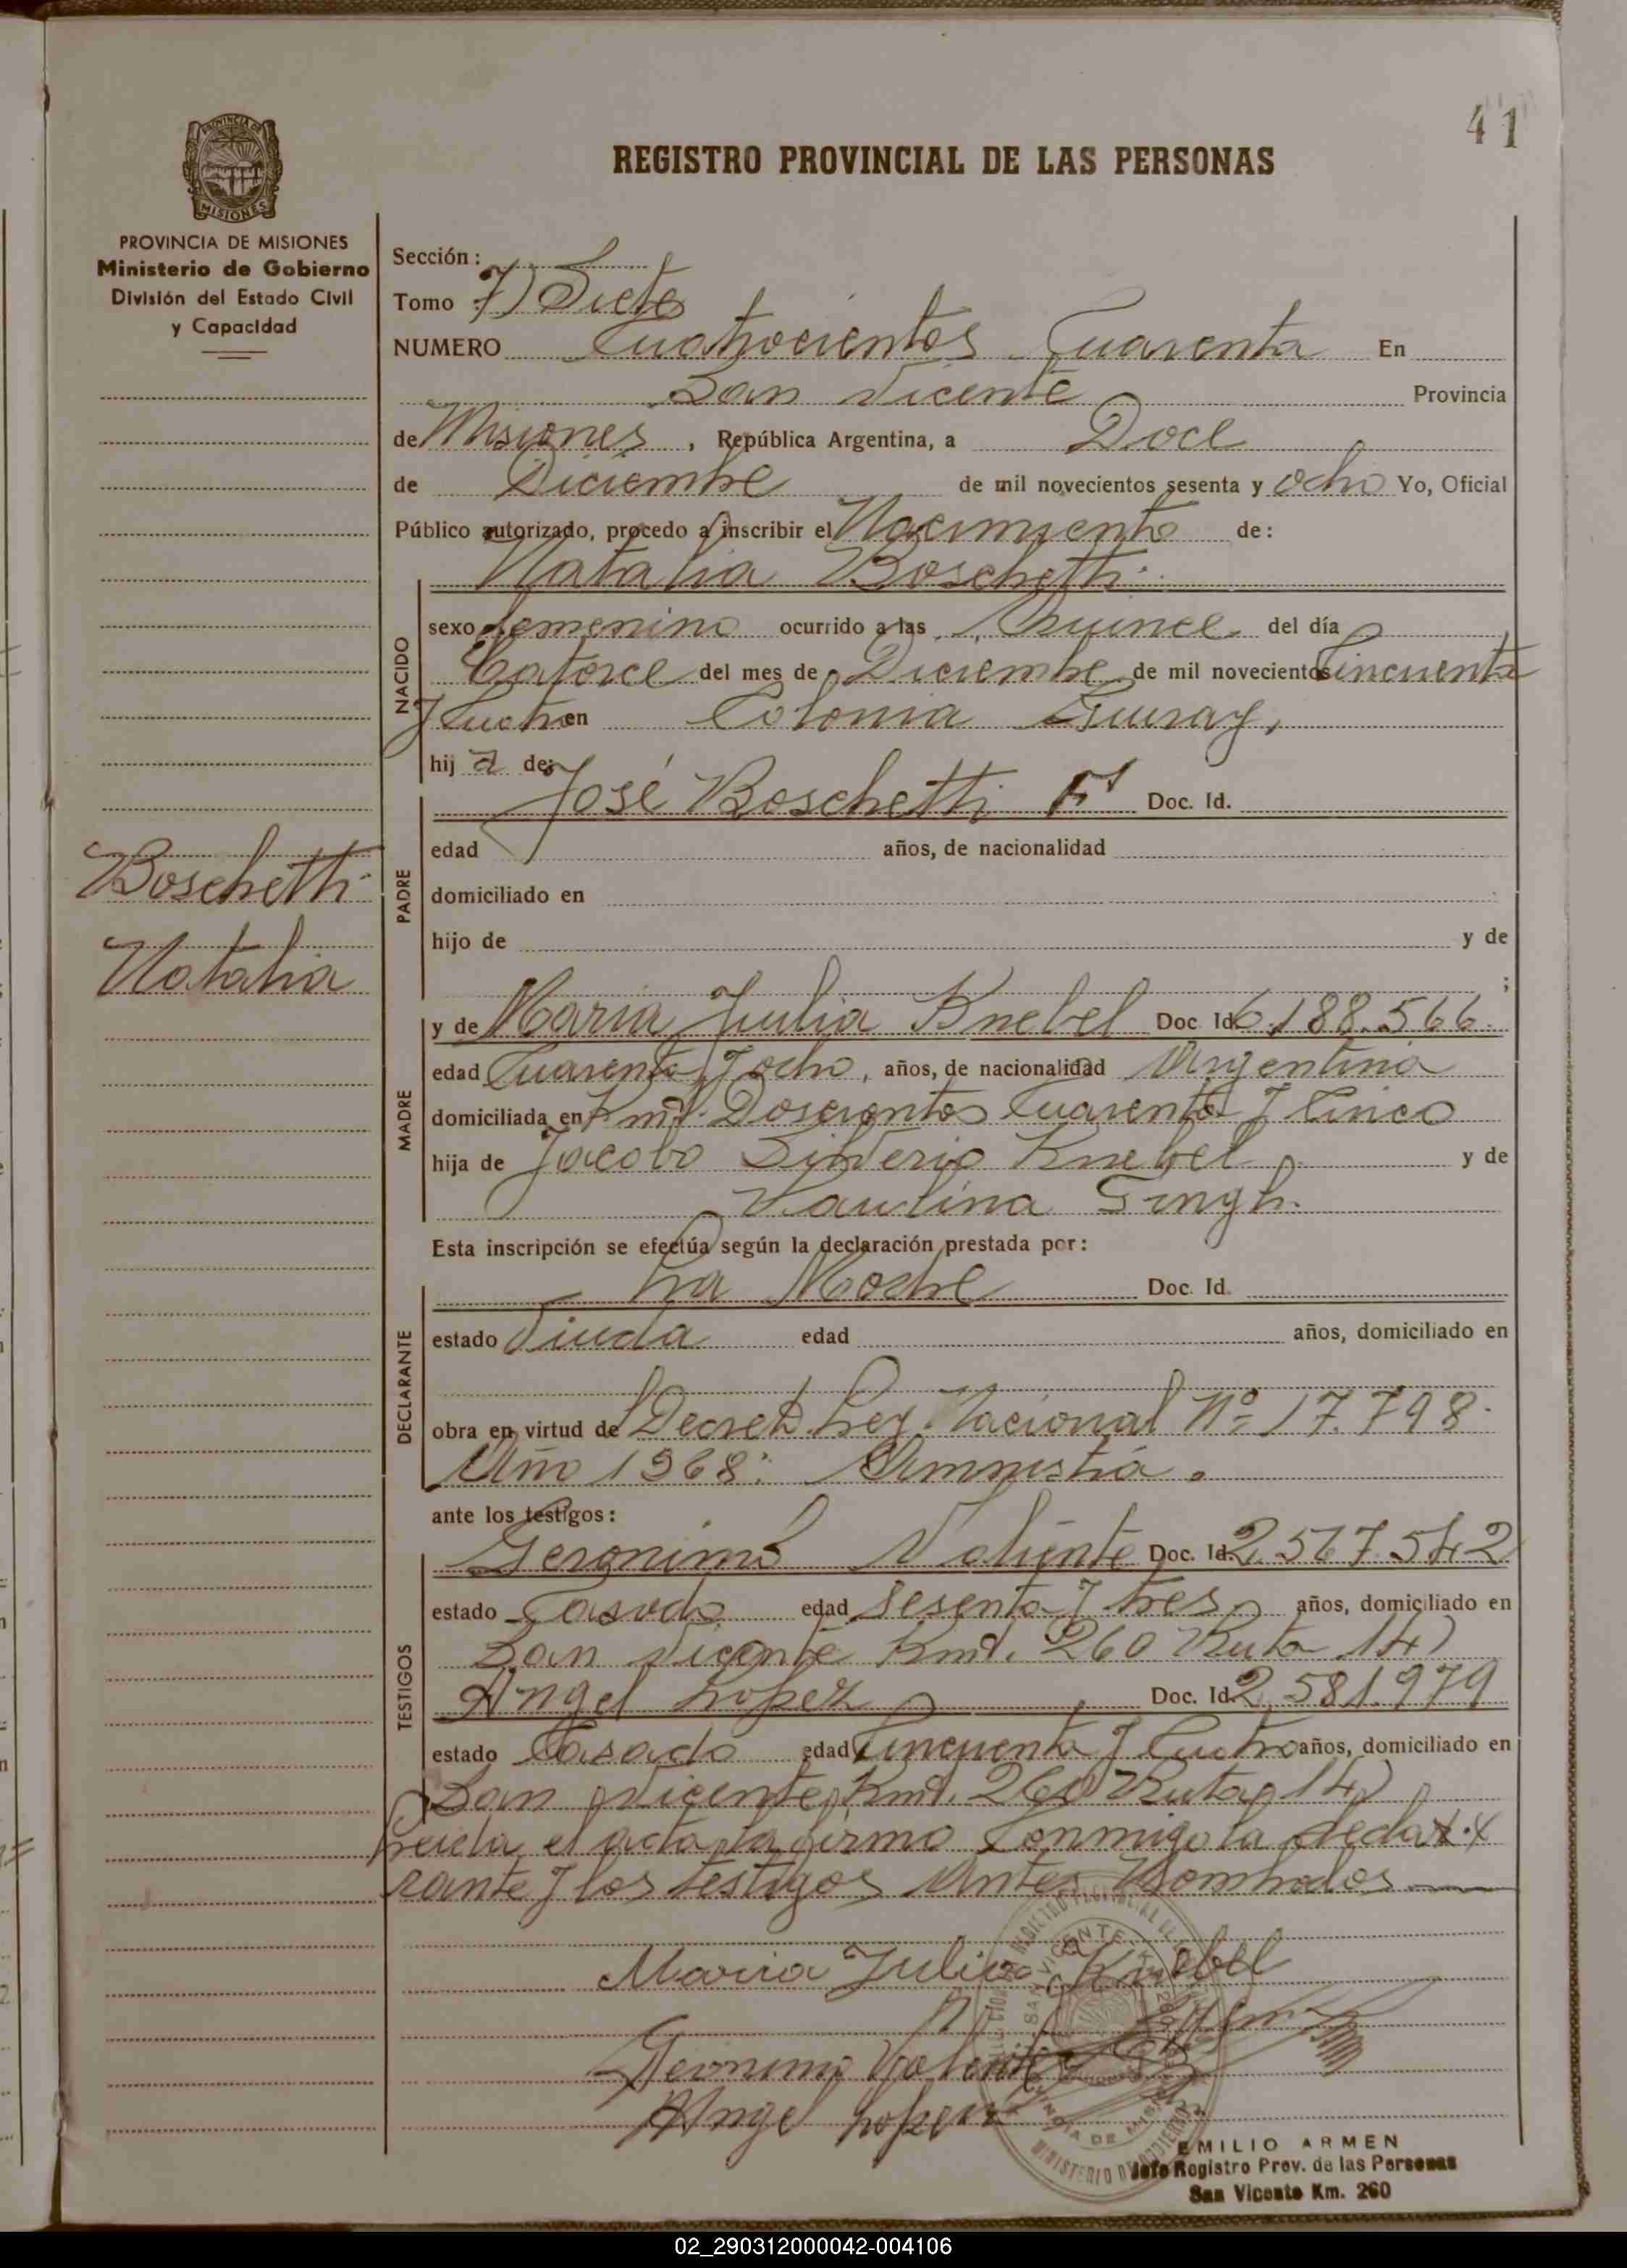 41
REGISTRO PROVINCIAL DE LAS PERSONAS
PROVINCIA DE MISIONES
MISIONES
PROVINCIA DE MISIONES
Ministerio de Gobierno
División del Estado Civil
y Capacidad
Sección:
Tomo : 7) Siete
NUMERO Cuatrocientos Cuarenta En
San Vicente Provincia
de Misiones, República Argentina, a Doce
de Diciembre de mil novecientos sesenta y ocho Yo, Oficial
Público autorizado, procedo a inscribir el Nacimiento de:
Natalia Boschetti.
NACIDO
sexo femenino ocurrido a las Quince del día
Catorce del mes de Diciembre de mil novecientos Cincuenta
y Cuatro en Colonia Guaray,
hij a de:
José Boschetti Doc. Id.
PADRE
edad años, de nacionalidad
domiciliado en
hijo de y de
;
Boschetti
Natalia
y de Maria Julia Knebel Doc Id. 6.188.566.
MADRE
edad Cuarenta y ocho, años, de nacionalidad Argentina
domiciliada en Kmt. Doscientos Cuarenta y Cinco
hija de Jacobo Silverio Knebel y de
Paulina Singh.
Esta inscripción se efectúa según la declaración prestada por:
La Madre Doc. Id.
DECLARANTE
estado Viuda edad años, domiciliado en
obra en virtud de Decreto Ley Nacional Nº 17.798.
Año 1968: Amnistia.
ante los testigos:
Geronimo Valiente Doc. Id. 2.567.542
TESTIGOS
estado Casado edad Sesenta y tres años, domiciliado en
San Vicente Kmt. 260 Ruta 14)
Angel Lopez Doc. Id. 2.581.979
estado Casado edad Cincuenta y Cuatro años, domiciliado en
San Vicente, Kmt. 260 Ruta 14)
Leida el acta la firma Conmigo la decla x.x
rante y los testigos Antes Nombrados
Maria Julia Knebel
Geronimo Valiente
Angel Lopez
SAN VICENTE
EMILIO ARMEN
Jefe Registro Prov. de las Personas
San Vicente Km. 260
02_290312000042-004106